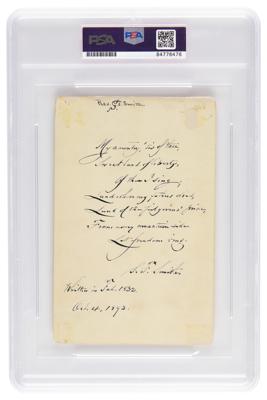 PSA
PSA
84778476
Rev. S. F. Smith
My country, 'tis of thee,
Sweet land of liberty,
Of thee I sing;
Land where my fathers died,
Land of the pilgrims' pride,
From every mountain side
Let freedom ring.
S. F. Smith
Written in Feb. 1832.
Oct. 4, 1893.